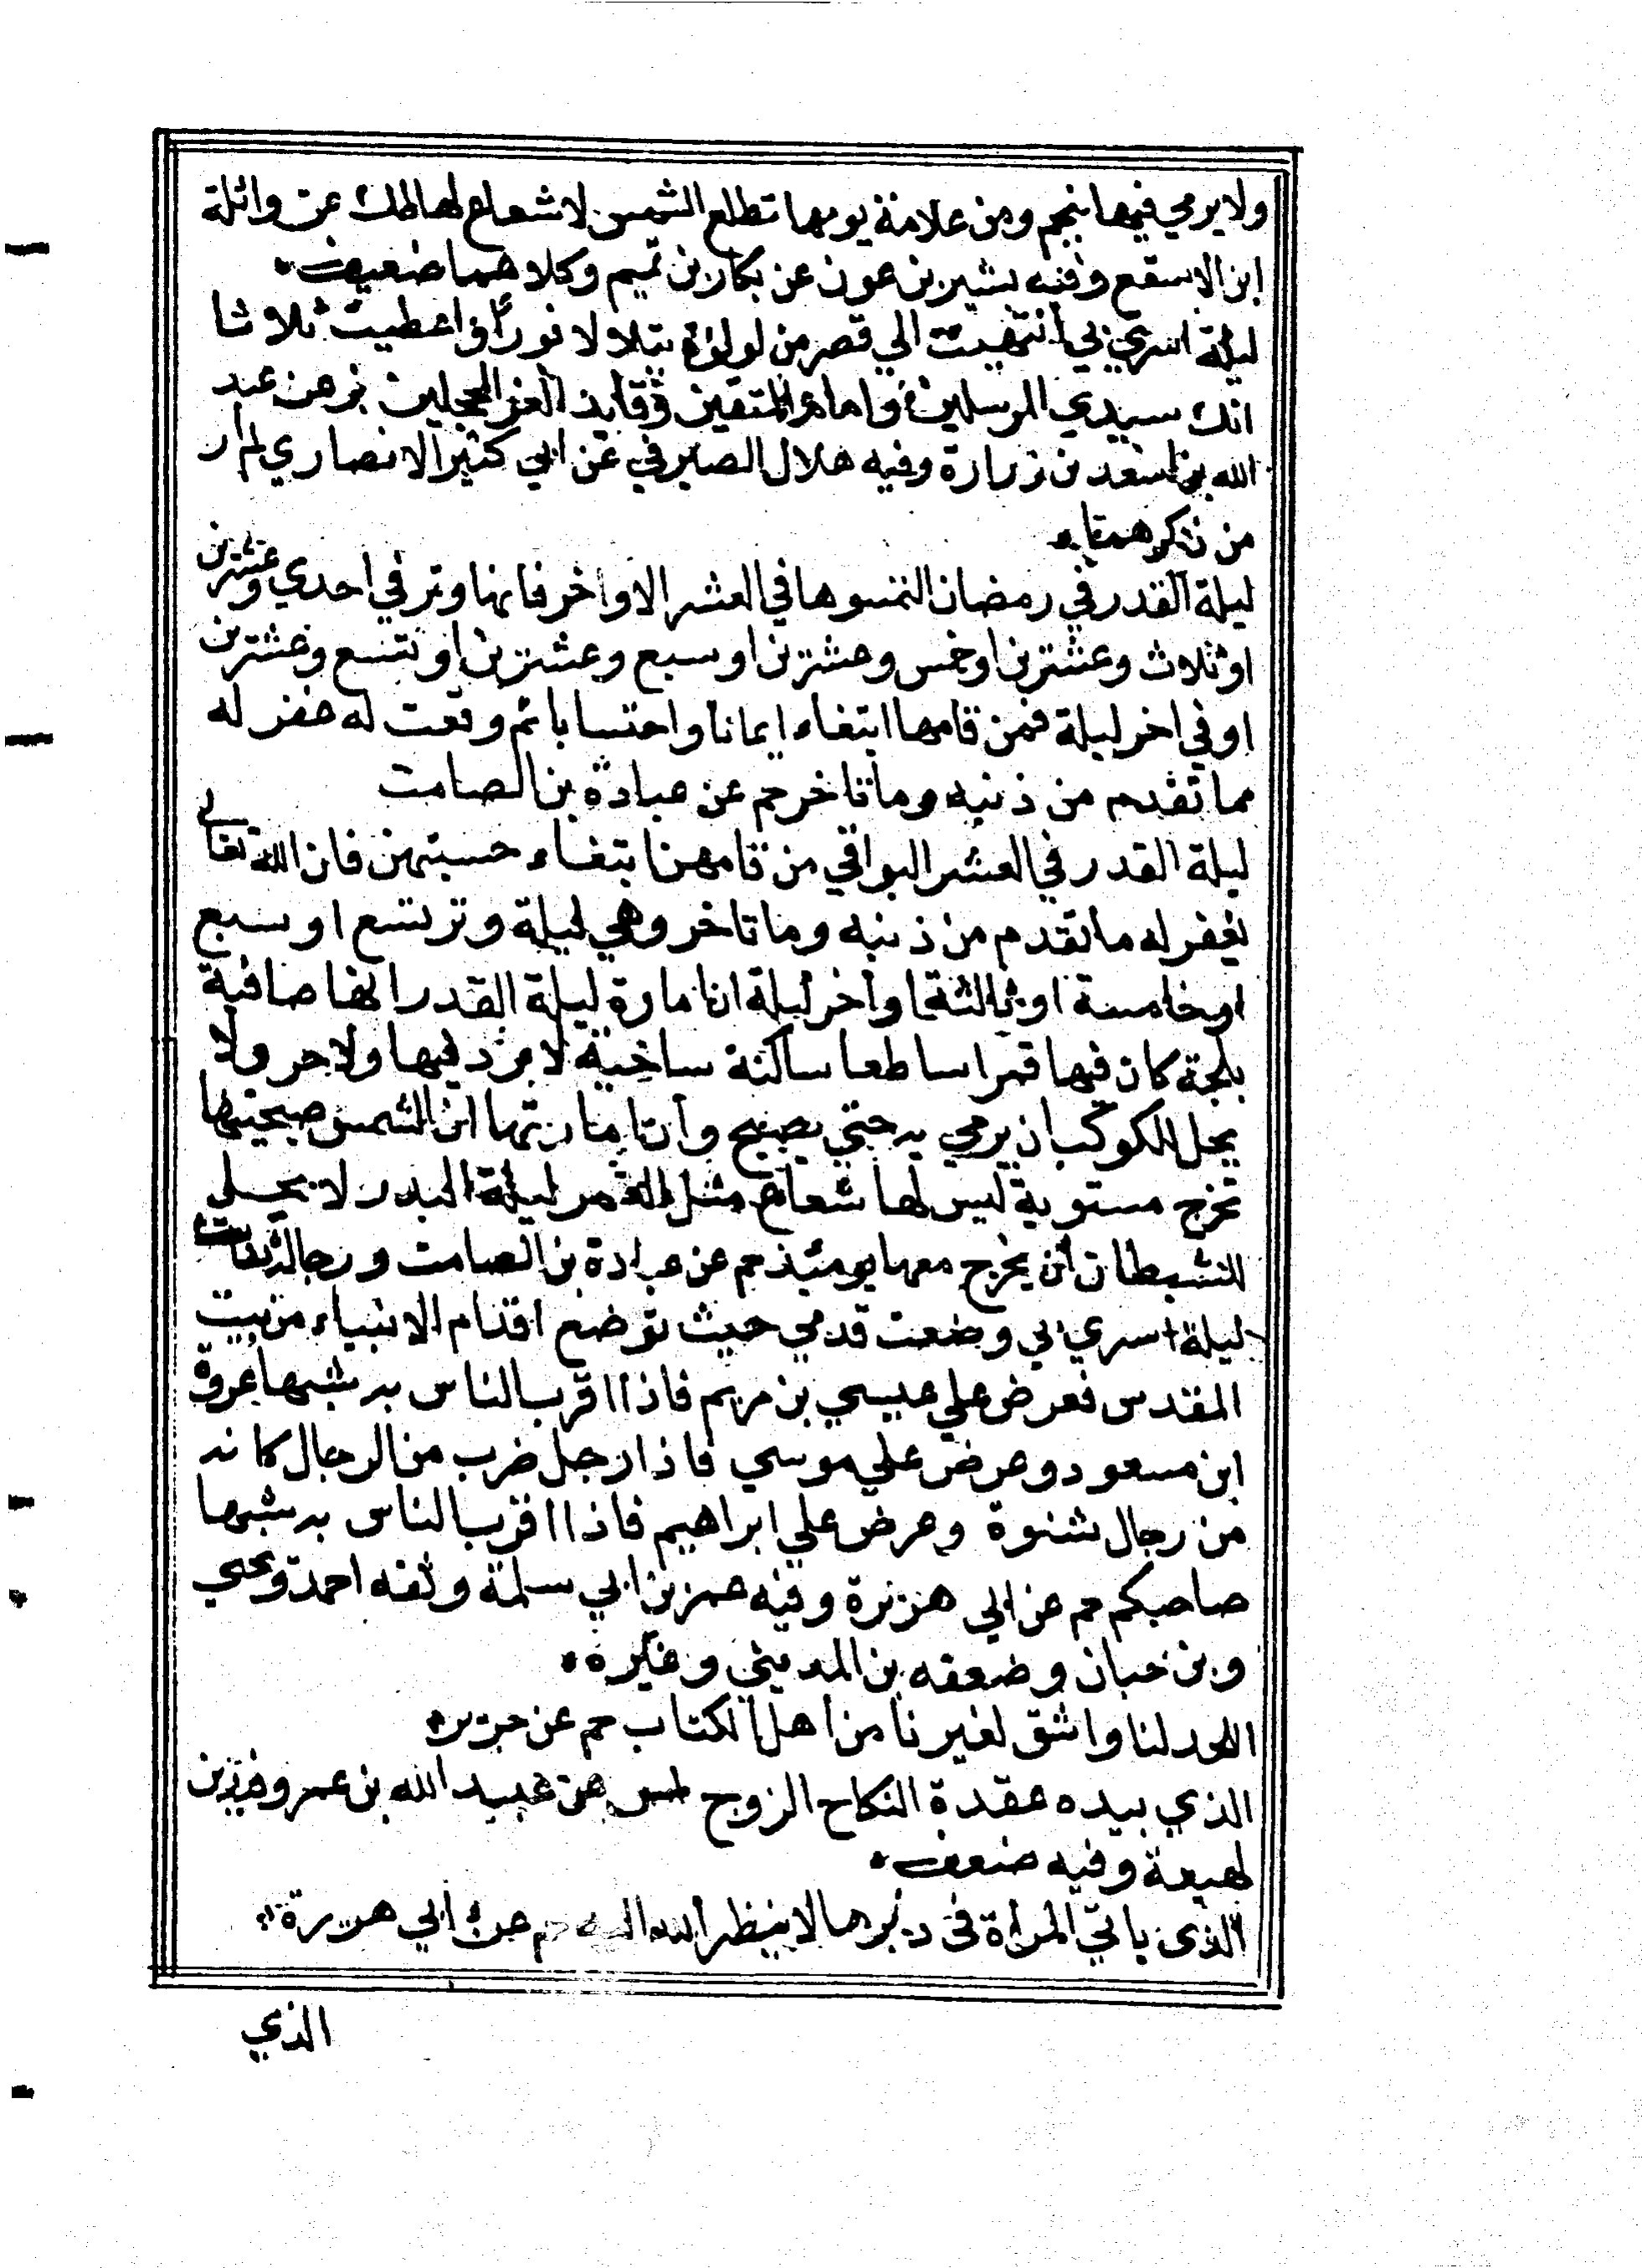 ولا يرمي فيها بنجم ومن علامة يومها تطلع الشمس لا شعاع لها طك عن واثلة
ابن الاسقع وفيه بشير بن عون عن بكار بن تميم وكلاهما ضعيف
ليلة اسري بي انتهيت الي قصر من لولؤة يتلالا نورا واعطيت ثلاثا
انك سيدي المرسلين وامام المتقين وقايد الغر المحجلين بز عن عبد
الله بن اسعد بن زرارة وفيه هلال الصيرفي عن ابي كثير الانصاري لم ار
من ذكرهما
ليلة القدر في رمضان التمسوها في العشر الاواخر فانها وتر في احدي وعشرين
او ثلاث وعشرين او خمس وعشرين او سبع وعشرين او تسع وعشرين
او في اخر ليلة فمن قامها ابتغاء ايمانا واحتسابا ثم وقعت له غفر له
مما تقدم من ذنبه وما تاخر حم عن عبادة بن الصامت
ليلة القدر في العشر البواقي من قامهن ابتغاء حسبتهن فان الله تعالي
يغفر له ما تقدم من ذنبه وما تاخر وهي ليلة وتر تسع او سبع
او خامسة او ثالثة او اخر ليلة ان امارة ليلة القدر انها صافية
بلجة كان فيها قمرا ساطعا ساكنة ساخية لا برد فيها ولا حر ولا
يحل للكوكب ان يرمي به حتي يصبح وان امارتها ان الشمس صبيحتها
تخرج مستوية ليس لها شعاع مثل القمر ليلة البدر لا يحل
للشيطان ان يخرج معها يومئذ حم عن عبادة بن الصامت ورجاله ثقات
ليلة اسري بي وضعت قدمي حيث توضع اقدام الانبياء من بيت
المقدس فعرض علي عيسي بن مريم فاذا اقرب الناس به شبها عروة
ابن مسعود وعرض علي موسي فاذا رجل ضرب من الرجال كانه
من رجال شنوة وعرض علي ابراهيم فاذا اقرب الناس به شبها
صاحبكم حم عن ابي هريرة وفيه عمر بن ابي سلمة وثقه احمد ويحيي
وبن حبان وضعفه بن المديني وغيره
اللحد لنا والشق لغيرنا من اهل الكتاب حم عن جرير
الذي بيده عقدة النكاح الزوج طس عن عبيد الله بن عمر وفيه بن
لهيعة وفيه ضعف
الذي ياتي المراة في دبرها لا ينظر الله اليه حم عن ابي هريرة
الذي